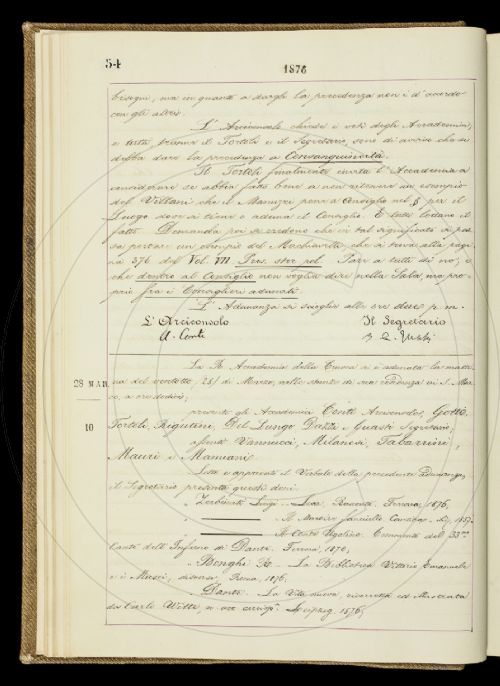 54
1876
bisogni, ma in quanto a dargli la precedenza non è d'accordo
con gli altri.
L'Arciconsolo chiede i voti degli Accademici,
e tutti, tranne il Tortoli e il Segretario, sono di avviso che si
debba dare la precedenza a Consanguineità.
Il Tortoli finalmente invita l'Accademia a
considerare se abbia fatto bene a non citare un esempio
del Villani che il Manuzzi pone a Consiglio nel § per il
Luogo dove si tiene o aduna il Consiglio. E tutti lodano il
fatto. Domanda poi se credono che in tal significato si pos-
sa portare un esempio del Machiavelli che si trova alla pagi-
na 376 del Vol. VII Pros. stor. pol. Pare a tutti di no, e
che dentro al Consiglio non voglia dire nella Sala, ma pro-
prio fra i Consiglieri adunati.
L'Adunanza si scioglie alle ore dieci p. m.
L'Arciconsolo
Il Segretario
A. Conti
28 MAR.
10
La R. Accademia della Crusca si è adunata la matti-
na del 28 di Marzo, nelle stanze di sua residenza in S. Mar-
co, a ore dodici;
presenti gli Accademici Conti Arciconsolo, Gotti,
Tortoli, Rigutini, Del Lungo, Dazzi e Guasti Segretario;
assenti Vannucci, Milanesi, Tabarrini,
Mauri e Mamiani.
Letto e approvato il Verbale della precedente Adunanza,
il Segretario presenta questi doni:
Ferrara, 1876.
Il Canto Ugolino. Commento del 33mo
Canto dell'Inferno di Dante. Ferrara, 1870;
Bonghi R. La Biblioteca Vittorio Emanuele
e i Musei, discorso, Roma, 1876;
Dante. La Vita nuova, ricorretta ed illustrata
da Carlo Witte, Leipzig, 1876;